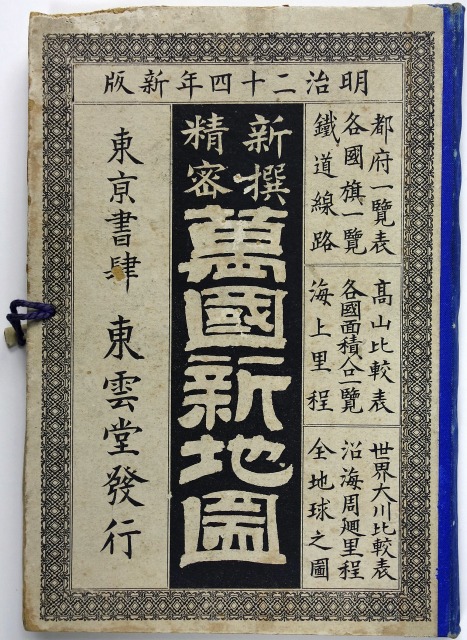 明治二十四年新版
都府一覽表
各國旗一覽
鐵道線路
高山比較表
各國面積人口一覽
海上里程
世界大川比較表
沿海周廻里程
全地球之圖
新撰
精密
萬國新地圖
東京書肆 東雲堂發行